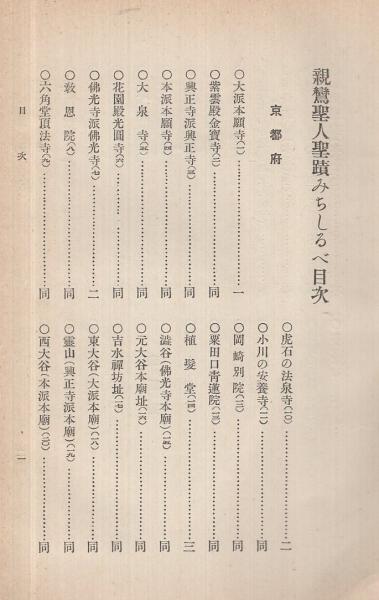 親鸞聖人聖蹟みちしるべ目次
京都府
〇大派本願寺(一)…………一
〇紫雲殿金寶寺(二)…………同
〇興正寺派興正寺(三)…………同
〇本派本願寺(四)…………同
〇大泉寺(五)…………同
〇花園殿光圓寺(六)…………同
〇佛光寺派佛光寺(七)…………二
〇敎恩院(八)…………同
〇六角堂頂法寺(九)…………同
〇虎石の法泉寺(一〇)…………二
〇小川の安養寺(一一)…………同
〇岡崎別院(一二)…………同
〇粟田口靑蓮院(一三)…………同
〇植髮堂(一四)…………三
〇澁谷(佛光寺本廟)(一五)…………同
〇元大谷本廟址(一六)…………同
〇吉水禪坊址(一七)…………同
〇東大谷(大派本廟)(一八)…………同
〇靈山(興正寺派本廟)(一九)…………同
〇西大谷(本派本廟)(二〇)…………同
目次
一